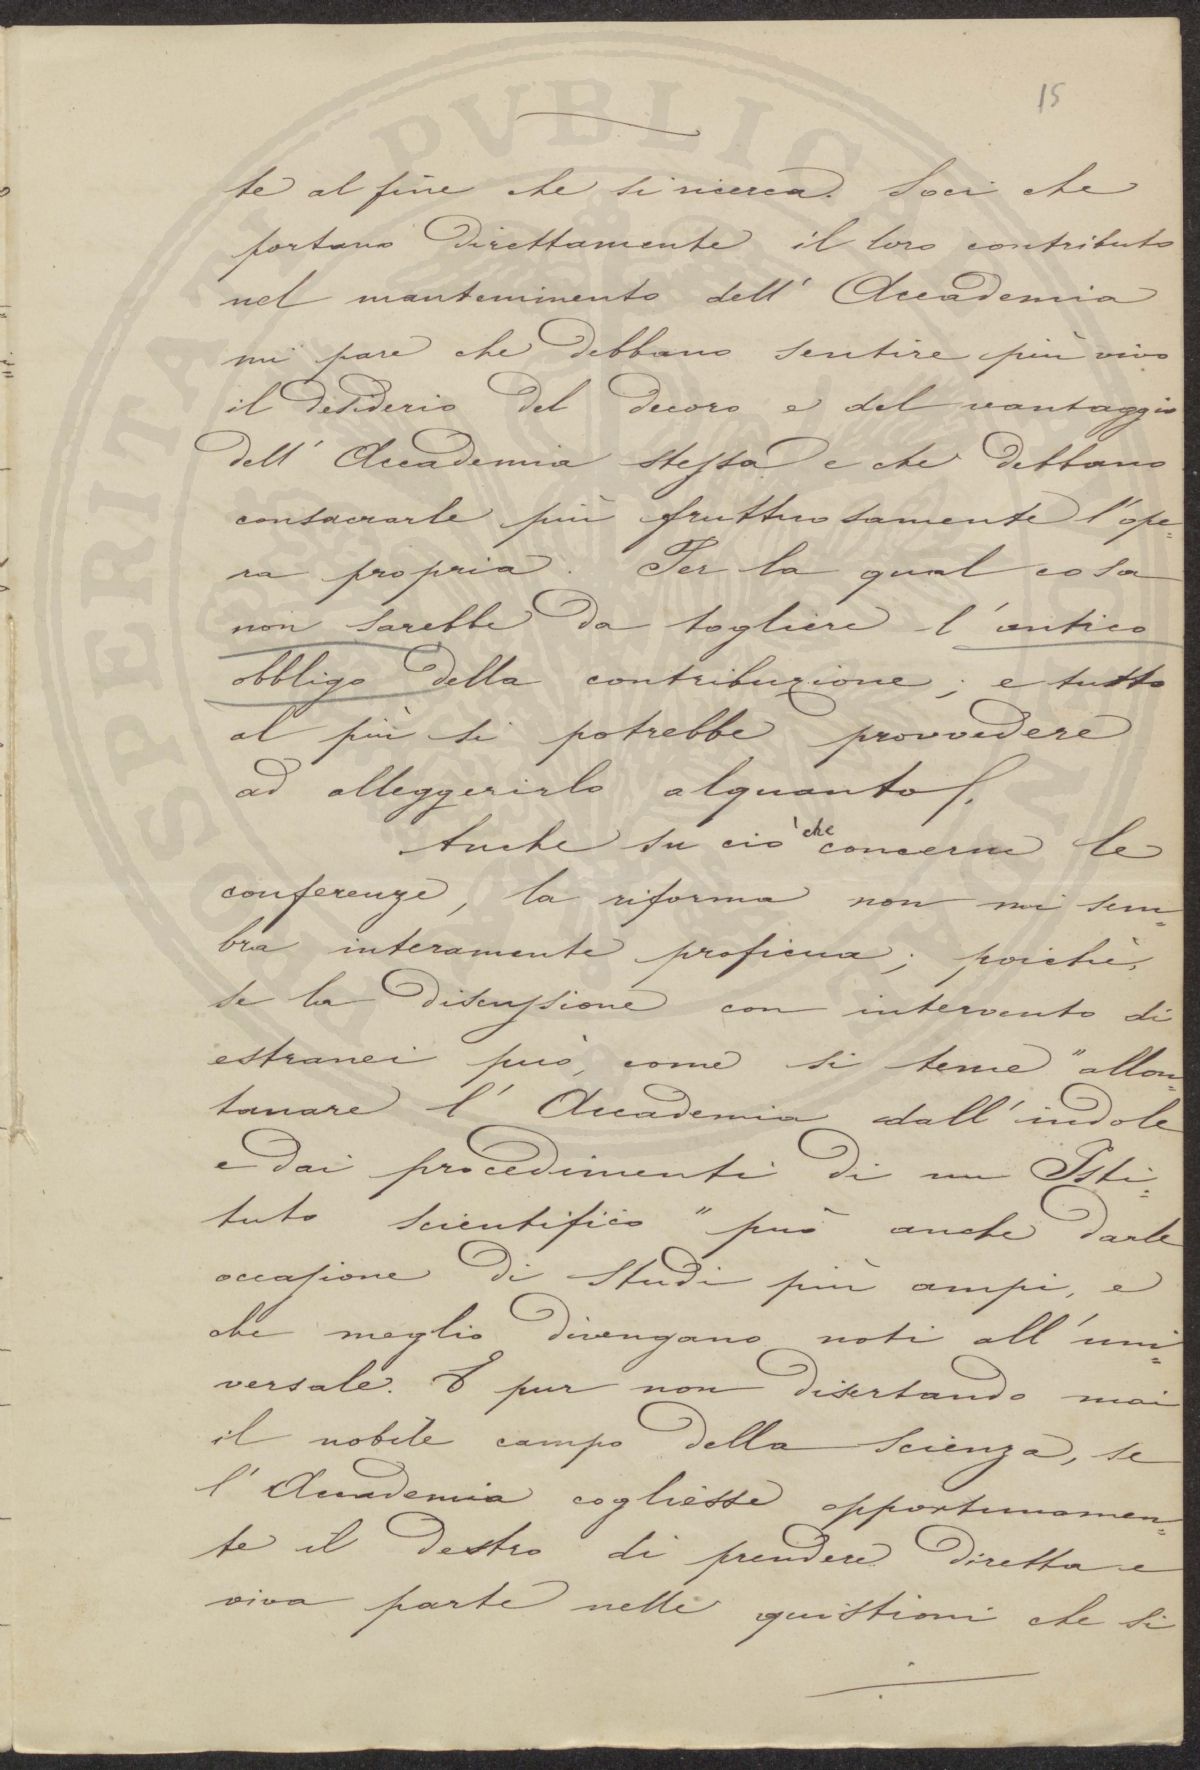 15
te al fine che si ricerca. Soci che
portano direttamente il loro contributo
nel mantenimento dell' Accademia
mi pare che debbano sentire più vivo
il desiderio del decoro e del vantaggio
dell' Accademia stessa e che debbano
consacrarle più fruttuosamente l'ope=
ra propria. Per la qual cosa
non sarebbe da togliere l'antico
obbligo della contribuzione; e tutto
al più si potrebbe provvedere
ad alleggerirlo alquanto.
Anche su ciò che concerne le
conferenze, la riforma non mi sem=
bra interamente proficua; poichè,
se la discussione con intervento di
estranei può, come si teme "allon=
tanare l' Accademia dall'indole
e dai procedimenti di un Isti=
tuto scientifico" può anche darle
occasione di studi più ampi, e
che meglio divengano noti all'uni=
versale. E pur non disertando mai
il nobile campo della scienza, se
l' Accademia cogliesse opportunamen=
te il destro di prendere diretta e
viva parte nelle quistioni che si
PROSPERITATI PVBLICAE